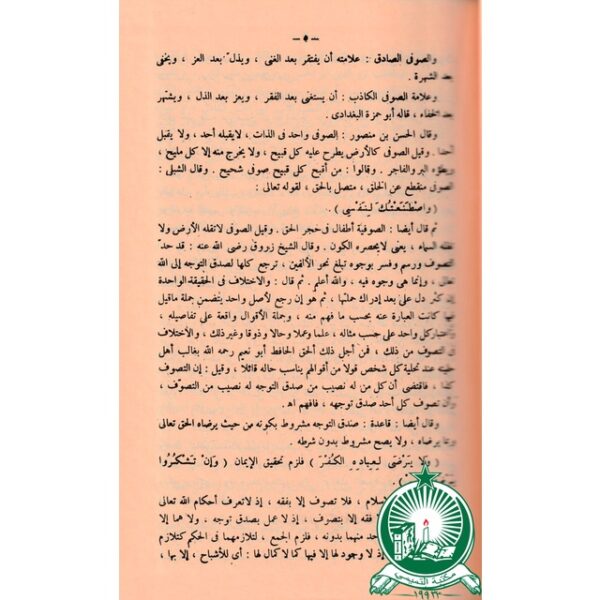 — ٥ —
والصوفى الصادق : علامته أن يفتقر بعد الغنى ، ويذلّ بعد العز ، ويخفى
بعد الشهرة .
وعلامة الصوفى الكاذب : أن يستغنى بعد الفقر ، ويعز بعد الذل ، ويشتهر
بعد الخفاء ، قاله أبو حمزة البغدادى .
وقال الحسن بن منصور : الصوفى واحد فى الذات ، لايقبله أحد ، ولا يقبل
أحدا . وقيل الصوفى كالأرض يطرح عليه كل قبيح ، ولا يخرج منه إلا كل مليح ،
ويطؤه البر والفاجر . وقالوا : من أقبح كل قبيح صوفى شحيح . وقال الشبلى :
الصوفى منقطع عن الخلق ، متصل بالحق ، لقوله تعالى :
( وَاصْطَنَعْتُكَ لِنَفْسِى ) .
ثم قال أيضا : الصوفية أطفال فى حجر الحق . وقيل الصوفى لاتقله الأرض ولا
تظله السماء ، يعنى لايحصره الكون . وقال الشيخ زروق رضى الله عنه : قد حدّ
التصوف ورسم وفسر بوجوه تبلغ نحو الألفين ، ترجع كلها لصدق التوجه إلى الله
تعالى ، وإنما هى وجوه فيه ، والله أعلم . ثم قال : والاختلاف فى الحقيقة الواحدة
إن كثر دل على بعد إدراك جملتها ، ثم هو إن رجع لأصل واحد يتضمن جملة ماقيل
فيها كانت العبارة عنه بحسب ما فهم منه ، وجملة الأقوال واقعة على تفاصيله ،
واعتبار كل واحد على حسب مثاله ، علما وعملا وحالا وذوقا وغير ذلك ، والاختلاف
فى التصوف من ذلك ، فمن أجل ذلك ألحق الحافظ أبو نعيم رحمه الله بغالب أهل
حليته عند تحلية كل شخص قولا من أقوالهم يناسب حاله قائلا ، وقيل : إن التصوف
كذا ، فاقتضى أن كل من له نصيب من صدق التوجه له نصيب من التصوّف ،
وأن تصوف كل أحد صدق توجهه ، فافهم اه .
وقال أيضا : قاعدة : صدق التوجه مشروط بكونه من حيث يرضاه الحق تعالى
وبما يرضاه ، ولا يصح مشروط بدون شرطه .
( وَلَا يَرْضَى لِعِبَادِهِ الْكُفْرَ ) فلزم تحقيق الإيمان ( وَإِنْ تَشْكُرُوا
) .
فلا تصوف إلا بفقه ، إذ لاتعرف أحكام الله تعالى
فقه إلا بتصوف ، إذ لا عمل بصدق توجه ، ولا هما إلا
منهما بدونه ، فلزم الجمع ، لتلازمهما فى الحكم كتلازم
إذ لا وجود لها إلا فيها كما لا كمال لها : أى للأشباح ، إلا بها ،
مكتبة التميمي